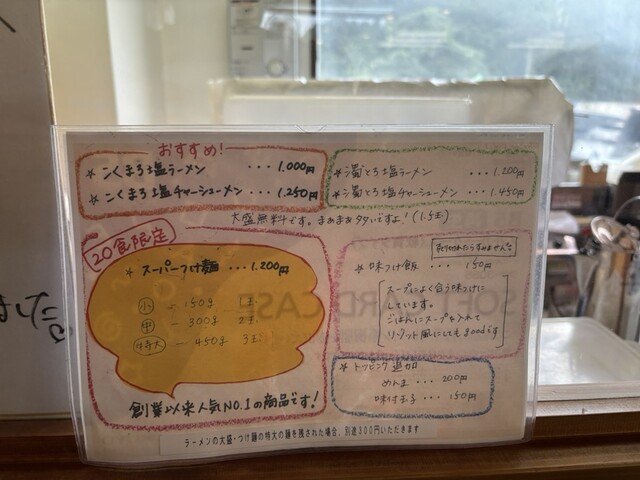 おすすめ!
☆ こくまろ塩ラーメン ・・・ 1,000円
☆ こくまろ塩チャーシューメン ・・・ 1,250円
☆ 濁とろ塩ラーメン ・・・ 1,200円
☆ 濁とろ塩チャーシューメン ・・・ 1,450円
大盛無料です。まあまあタタいですよ! (1.5玉)
20食限定
☆ スーパーつけ麺 ・・・ 1,200円
小 - 150g 1玉
中 - 300g 2玉
特大 - 450g 3玉
創業以来人気NO.1の商品です!
売り切れたらすみません
☆ 味つけ飯 ・・・ 150円
スープによく合う味つけに
しています。
ごはんにスープを入れて
リゾット風にしてもgoodです
☆ トッピング追加
めんま ・・・ 200円
味付玉子 ・・・ 150円
ラーメンの大盛・つけ麺の特大の麺を残された場合、別途300円いただきます